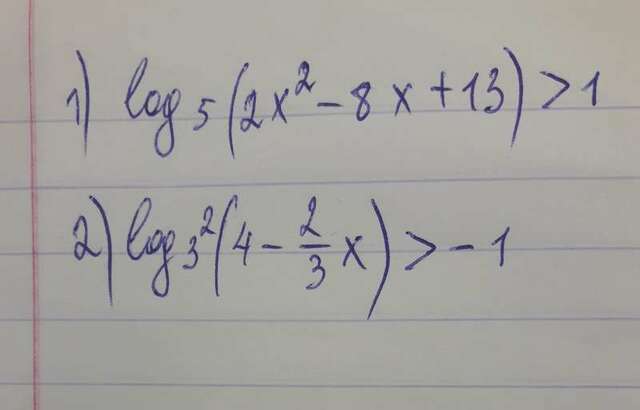 1) log₅(2x² - 8x + 13) > 1
2) log₃²(4 - 2/3 x) > -1